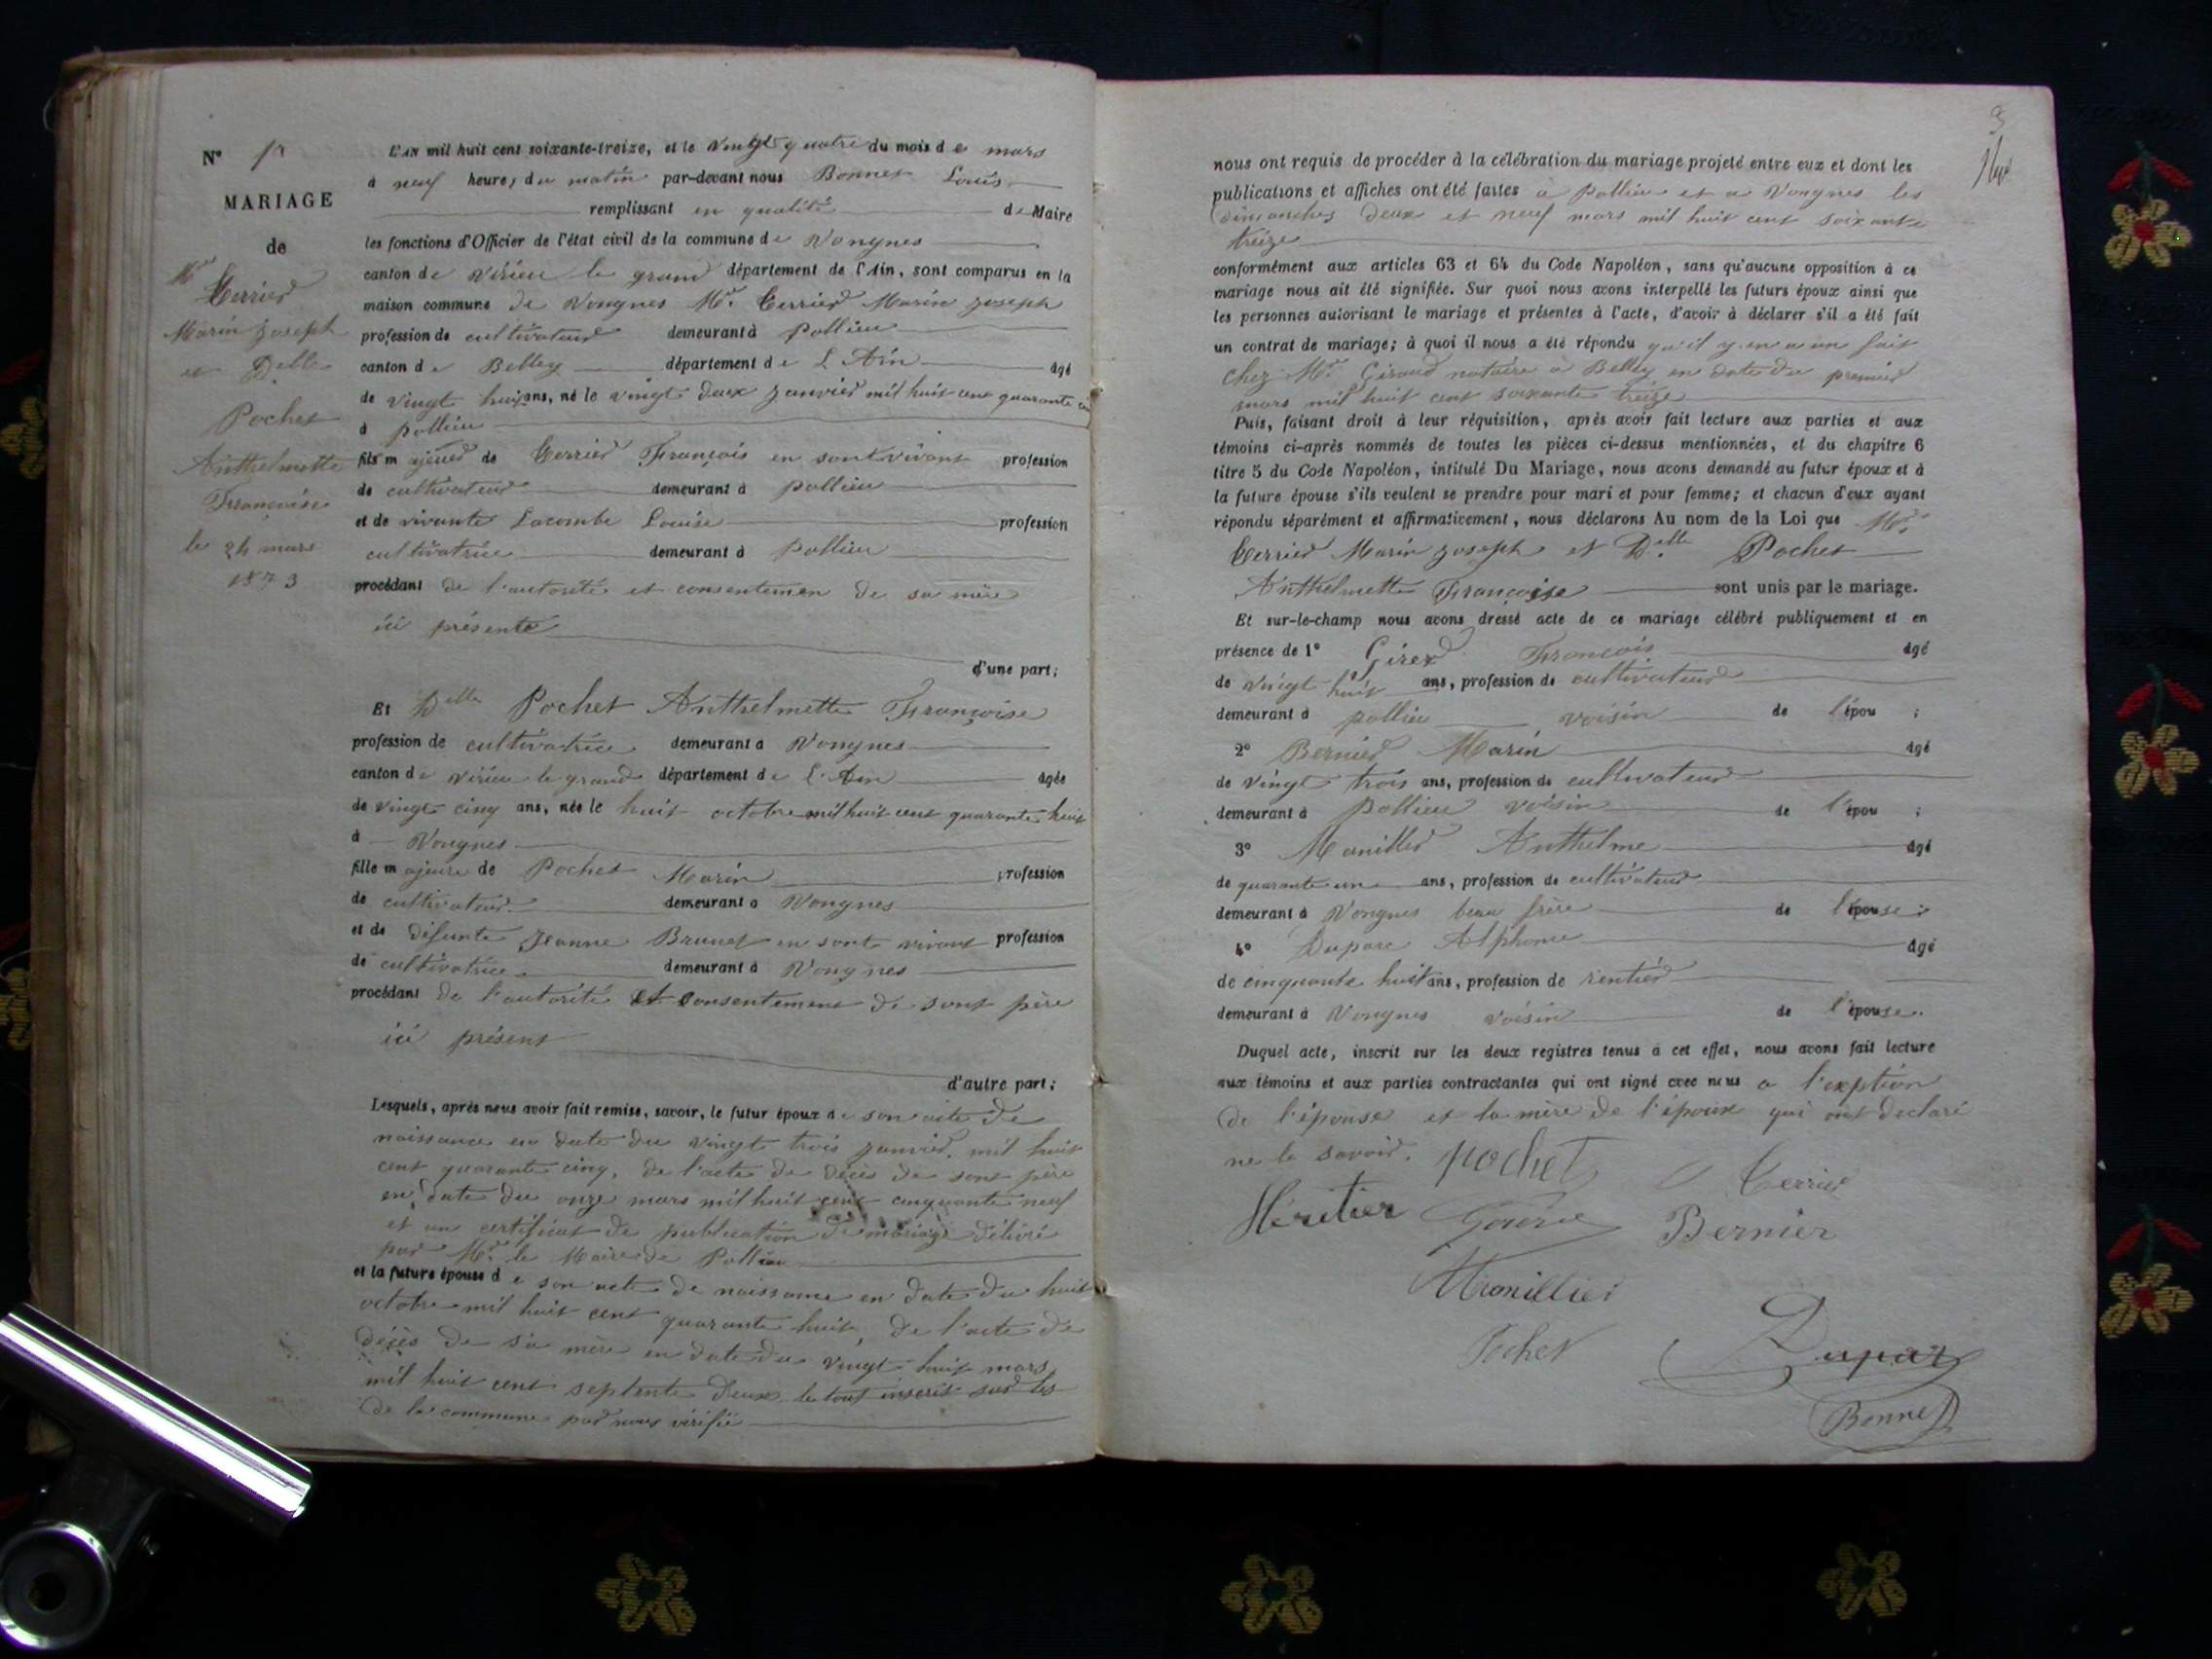 N°
MARIAGE
de
Mr
Terrier
Marin Joseph
et Delle
Pochet
Anthelmette
Françoise
le 24 mars
1873
L'AN mil huit cent soixante-treize, et le vingt quatre du mois de mars
à neuf heures du matin par-devant nous Bonnet Louis
remplissant en qualité de Maire
les fonctions d'Officier de l'état civil de la commune de Vongnes
canton de Virieu le grand département de l'Ain, sont comparus en la
maison commune de Vongnes Mr. Terrier Marin Joseph
profession de cultivateur demeurant à pollieu
canton de Belley département de L'Ain âgé
de vingt huit ans, né le vingt deux Janvier mil huit cent quarante
à pollieu
fils majeur de Terrier François en sont vivant profession
de cultivateur demeurant à pollieu
et de vivante Lacombe Louise profession
cultivatrice demeurant à pollieu
procédant de l'autorité et consentemen de sa mère
ici présente
d'une part;
Et Delle Pochet Anthelmette Françoise
profession de cultivatrice demeurant à Vongnes
canton de virieu le grand département de L'Ain âgée
de vingt cinq ans, née le huit octobre mil huit cent quarante huit
à Vongnes
fille majeure de Pochet Marin profession
de cultivateur demeurant à Vongnes
et de défunte Jeanne Brunet en sont vivant profession
de cultivatrice demeurant à Vongnes
procédant de l'autorité et consentement de sont père
ici présent
d'autre part;
Lesquels, après nous avoir fait remise, savoir, le futur époux de son acte de
naissance en date du vingt trois Janvier mil huit
cent quarante cinq, de l'acte de décès de sont père
en date du onze mars mil huit cent cinquante neuf
et un certificat de publication de mariage délivré
par Mr. le Maire de Pollieu
et la future épouse de son acte de naissance en date du huit
octobre mil huit cent quarante huit, de l'acte de
décès de sa mère en date du vingt huit mars
mil huit cent septente deux le tout inscrit sur les
de la commune par nous vérifié
3
nous ont requis de procéder à la célébration du mariage projeté entre eux et dont les
publications et affiches ont été faites à Pollieu et a Vongnes les
dimanches deux et neuf mars mil huit cent soixante
treize
conformément aux articles 63 et 64 du Code Napoléon, sans qu'aucune opposition à ce
mariage nous ait été signifiée. Sur quoi nous avons interpellé les futurs époux ainsi que
les personnes autorisant le mariage et présentes à l'acte, d'avoir à déclarer s'il a été fait
un contrat de mariage; à quoi il nous a été répondu qu'il y en a un fait
chez Mr. Giraud notaire à Belley en date du premier
mars mil huit cent soixante treize
Puis, faisant droit à leur réquisition, après avoir fait lecture aux parties et aux
témoins ci-après nommés de toutes les pièces ci-dessus mentionnées, et du chapitre 6
titre 5 du Code Napoléon, intitulé Du Mariage, nous avons demandé au futur époux et à
la future épouse s'ils veulent se prendre pour mari et pour femme; et chacun d'eux ayant
répondu séparément et affirmativement, nous déclarons Au nom de la Loi que Mr.
Terrier Marin Joseph et Delle Pochet
Anthelmette Françoise sont unis par le mariage.
Et sur-le-champ nous avons dressé acte de ce mariage célébré publiquement et en
présence de 1° François âgé
de vingt huit ans, profession de cultivateur
demeurant à pollieu voisin de l'épou ;
2° Bernier Marin âgé
de vingt trois ans, profession de cultivateur
demeurant à Pollieu voisin de l'épou ;
3° Anthelme âgé
de quarante un ans, profession de cultivateur
demeurant à Vongnes beau frère de l'épouse;
4° Duparc Alphonse âgé
de cinquante huit ans, profession de rentier
demeurant à Vongnes voisin de l'épouse.
Duquel acte, inscrit sur les deux registres tenus à cet effet, nous avons fait lecture
aux témoins et aux parties contractantes qui ont signé avec nous a l'exption
de l'épouse et la mère de l'époux qui ont declaré
ne le savoir. Pochet Terrier
Héritier Bernier
Pochet Duparc
Bonnet